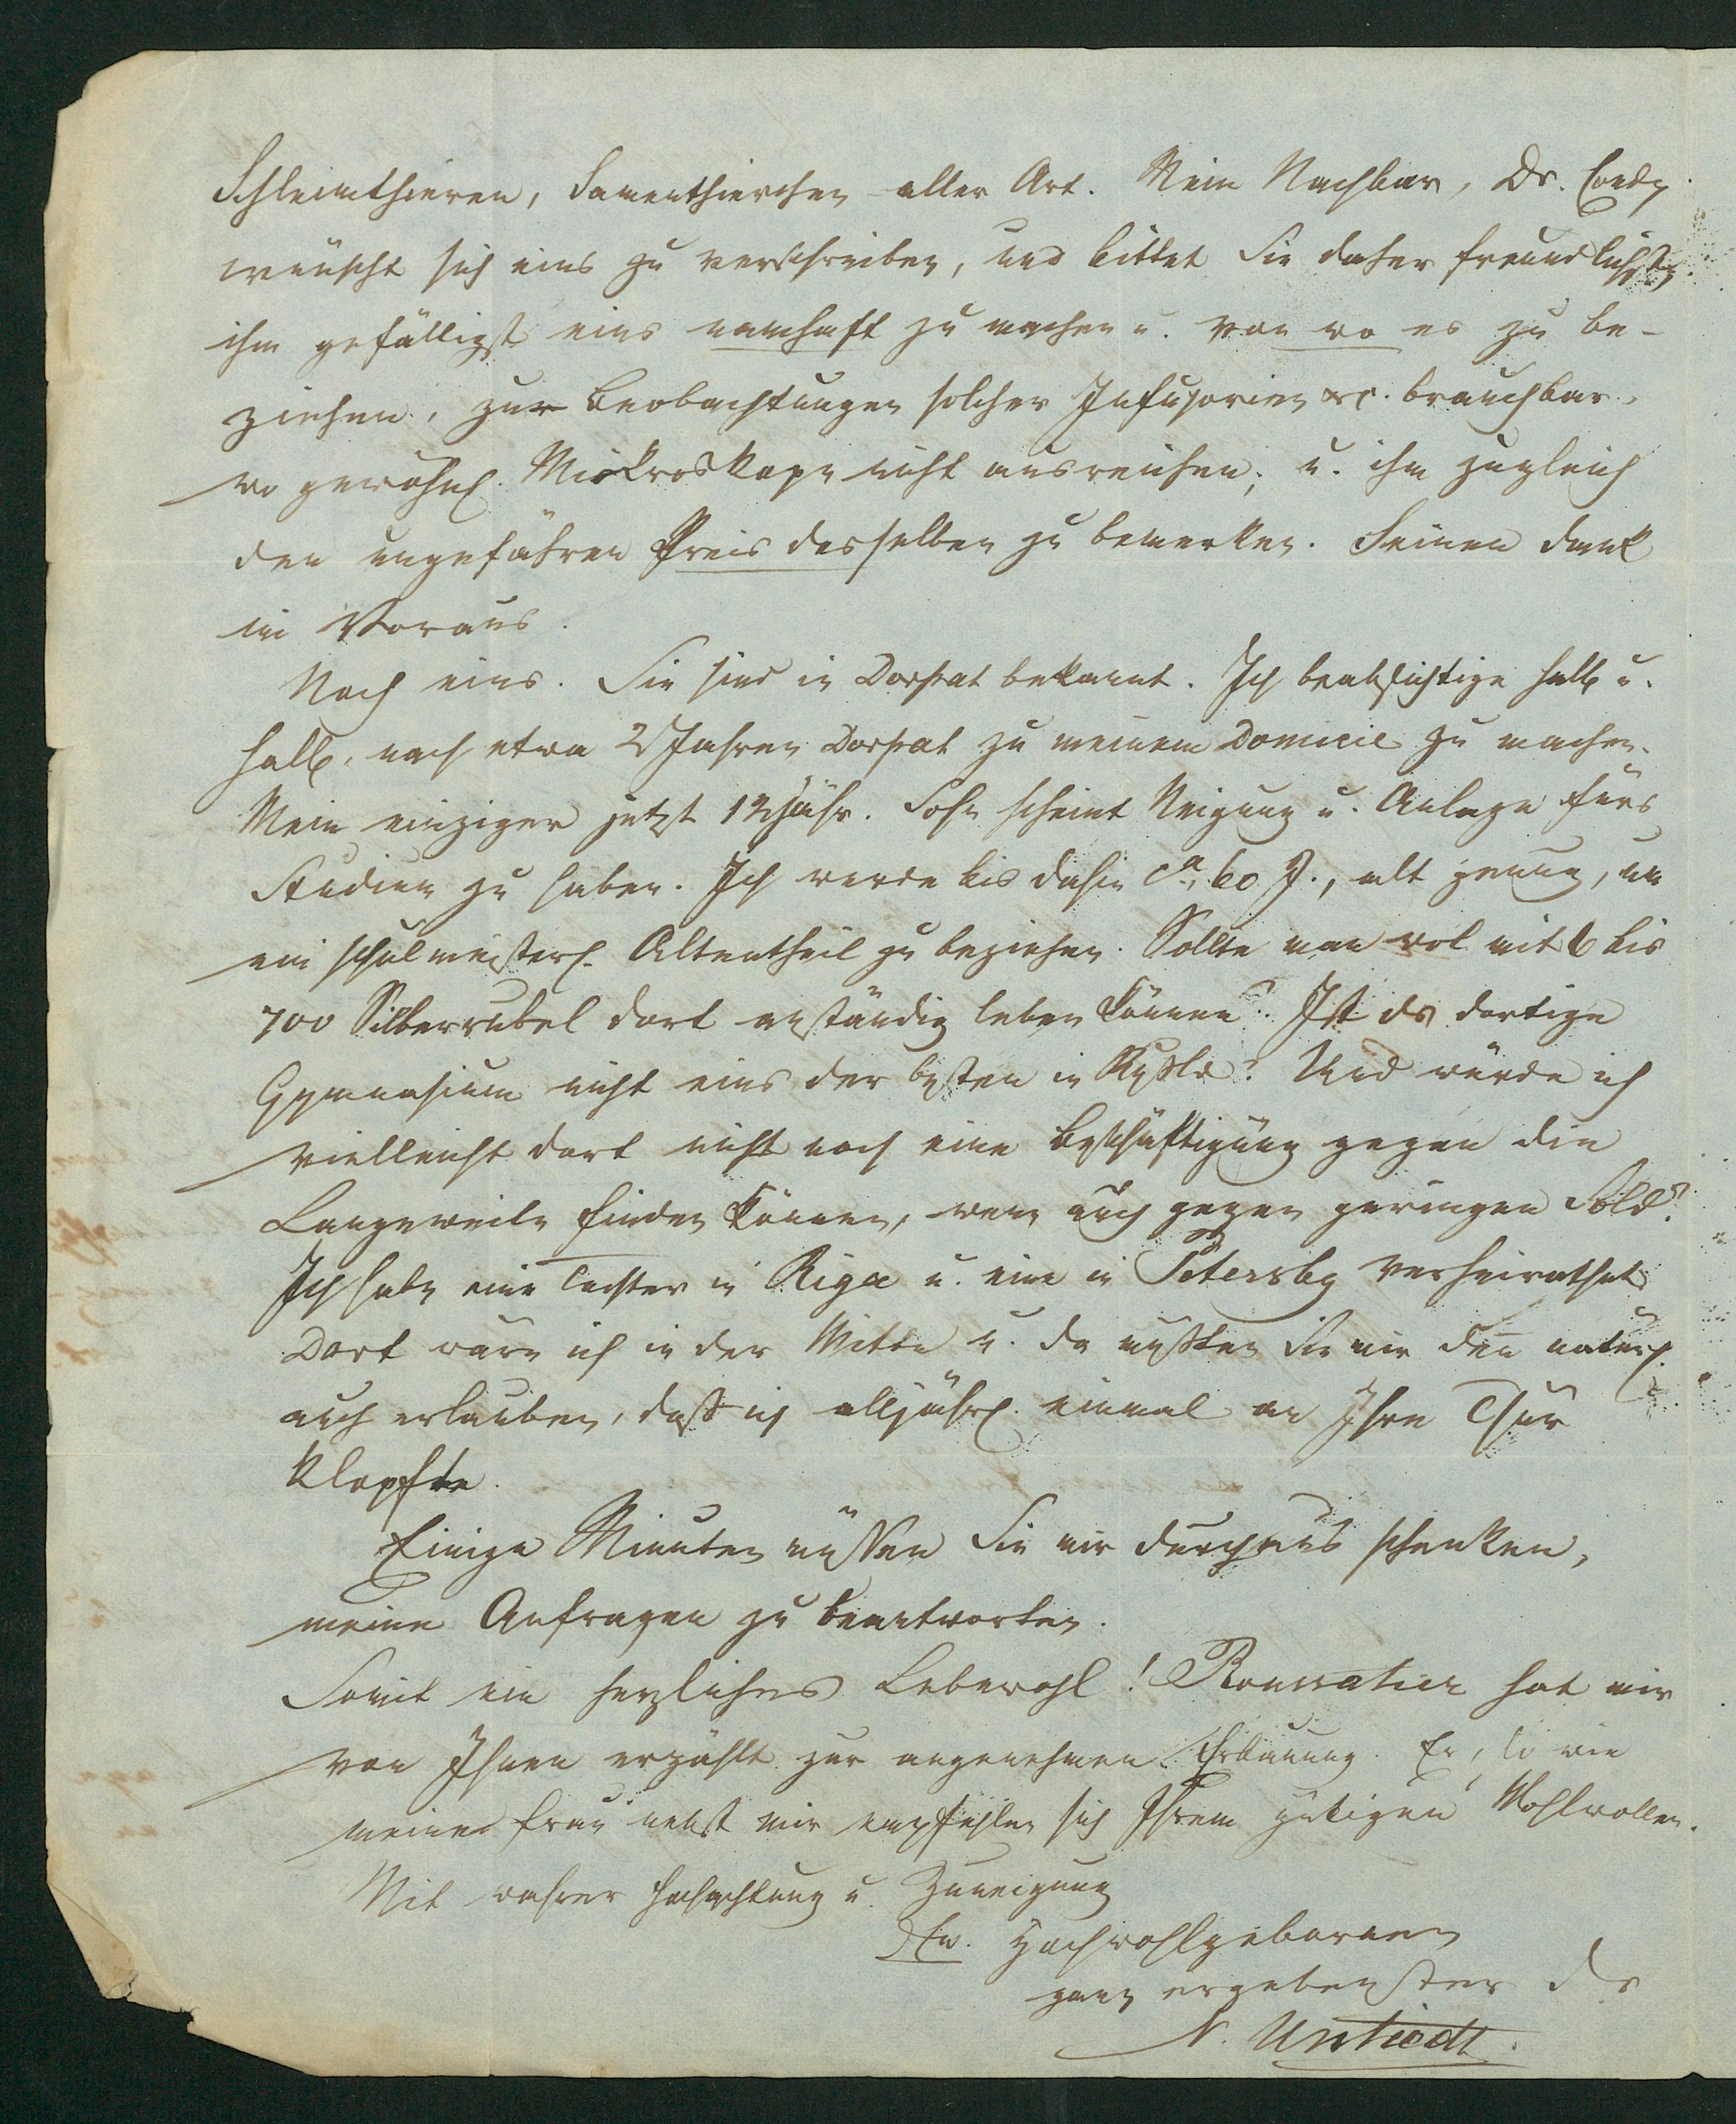 Schleimthieren, Samenthierchen aller Art. Mein Nachbar, Dr.
wünscht sich eins zu verschreiben, und bittet Sie daher freundlichst,
ihm gefälligst eins namhaft zu machen u. von wo es zu be-
ziehen, zur Beobachtungen solcher Infusorien &c. brauchbar,
wo gewöhnl. Mikroskope nicht ausreichen; u. ihm zugleich
den ungefähren Preis desselben zu bemerken. Seinen Dank
im Voraus.
Noch eins. Sie sind in Dorpat bekannt. Ich beabsichtige halb u.
halb, nach etwa 2 Jahren Dorpat zu meinem Domicil zu machen.
Mein einziger jetzt 12jähr. Sohn scheint Neigung u. Anlage fürs
Studium zu haben. Ich werde bis dahin ca. 60 J., alt genug, um
ein schulmeisterl. Altentheil zu beziehen. Sollte man wol mit 6 bis
700 Silberrubel dort anständig leben können? Ist das dortige
Gymnasium nicht eins der besten in Rußld? Und würde ich
vielleicht dort nicht noch eine Beschäftigung gegen die
Langeweile finden können, wenn auch gegen geringen Sold?
Ich habe eine Tochter in Riga u. eine in Petersbg verheirathet
Dort wäre ich in der Mitte u. da müßten Sie mir denn natürl.
auch erlauben, daß ich alljährl. einmal an Ihre Thür
klopfte.
Einige Minuten müssen Sie mir durchaus schenken,
meine Anfragen zu beantworten.
Somit ein herzliches Lebewohl! hat mir
von Ihnen erzählt zur angenehmen Erbauung. Er, so wie
meine Frau nebst mir empfehlen sich Ihrem gütigen Wohlwollen.
Mit wahrer Hochachtung u. Zuneigung
Ew. Hochwohlgebornen
ganz ergebenster Dr
N. Untiedt.